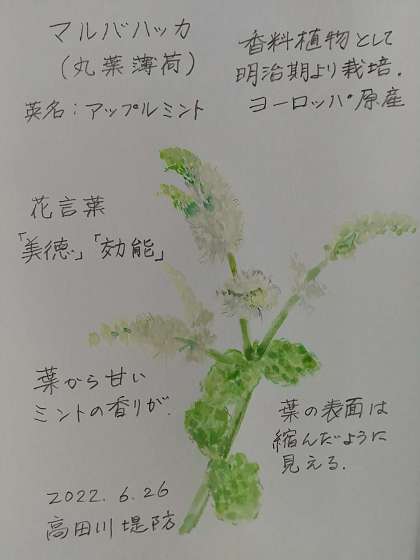 マルバハッカ
(丸葉薄荷)
英名:アップルミント
香料植物として
明治期より栽培.
ヨーロッパ原産
花言葉
「美徳」「効能」
葉から甘い
ミントの香りが.
葉の表面は
縮んだように
見える.
2022.6.26
高田川堤防